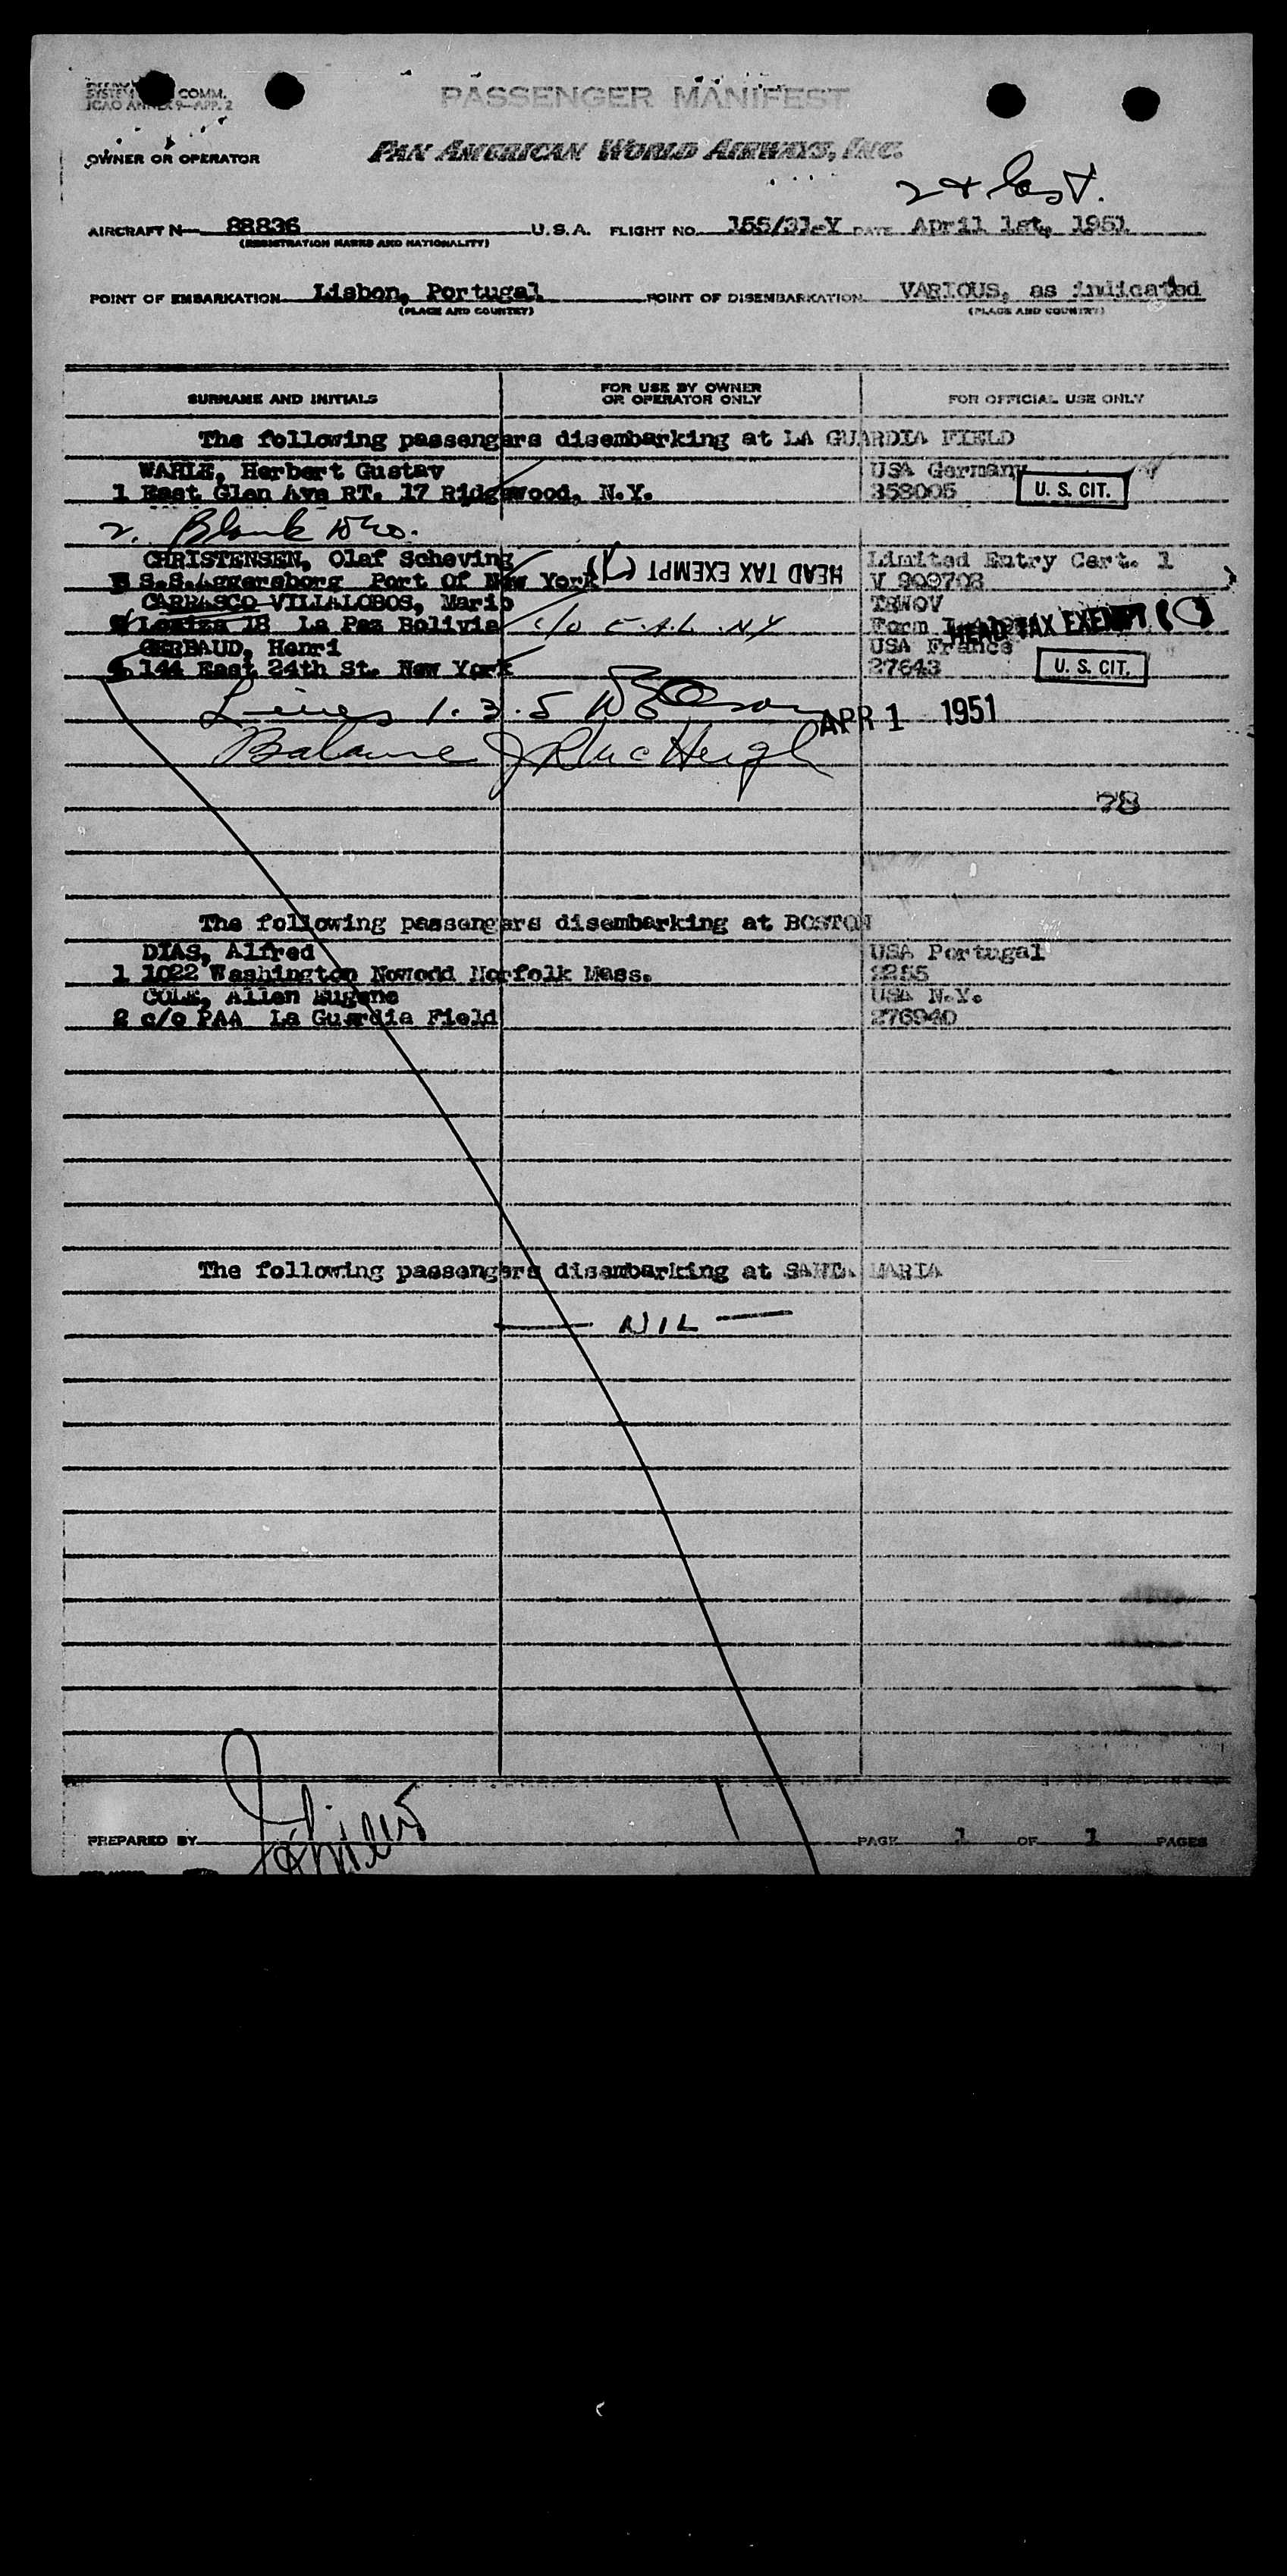 COMM.
ICAO ANNEX 9—APP. 2
PASSENGER MANIFEST
OWNER OR OPERATOR
PAN AMERICAN WORLD AIRWAYS, INC.
2 & last.
AIRCRAFT N— 88836 U.S.A. FLIGHT NO. 155/31-Y DATE April 1st, 1951
(REGISTRATION MARKS AND NATIONALITY)
POINT OF EMBARKATION Lisbon, Portugal POINT OF DISEMBARKATION VARIOUS, as indicated
(PLACE AND COUNTRY) (PLACE AND COUNTRY)
SURNAME AND INITIALS FOR USE BY OWNER OR OPERATOR ONLY FOR OFFICIAL USE ONLY
The following passengers disembarking at LA GUARDIA FIELD
WAHLE, Herbert Gustav USA Germany
1 East Glen Ave RT. 17 Ridgewood, N.Y. 358005 U. S. CIT.
2. Blank
CHRISTENSEN, Olaf Scheving Limited Entry Cert. 1
3 S.S.Aggersborg Port Of New York HEAD TAX EXEMPT ( ) V 909708
CARRASCO VILLALOBOS, Mario TRWOV
Loaiza 18 La Paz Bolivia c/o E.A.L. NY Form HEAD TAX EXEMPT
GERBAUD, Henri USA France
144 East 24th St. New York 27643 U. S. CIT.
Lines 1. 3. 5
APR 1 1951
Balance
78
The following passengers disembarking at BOSTON
DIAS, Alfred USA Portugal
1 1022 Washington Nowodd Norfolk Mass. 2255
COLE, Allen Eugene USA N.Y.
2 c/o PAA La Guardia Field 276940
The following passengers disembarking at SANTA MARIA
— NIL —
PREPARED BY PAGE 1 OF 1 PAGES